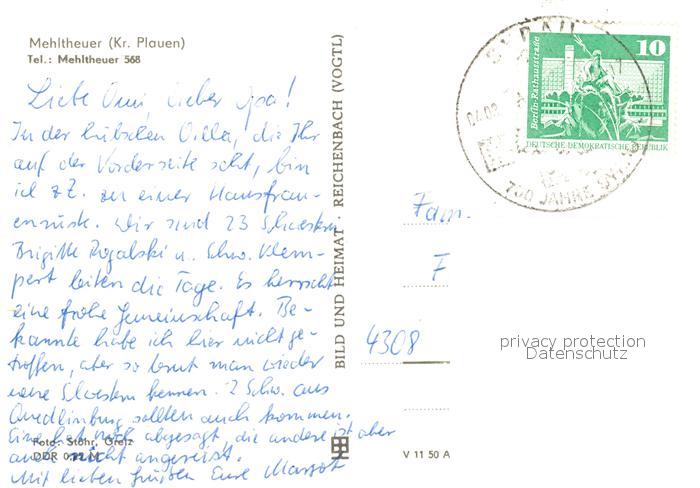 Mehltheuer (Kr. Plauen)
Tel.: Mehltheuer 568
Liebe Omi, lieber Opa!
In der hübschen Villa, die Ihr
auf der Vorderseite seht, bin
ich z.Z. zu einer Hausfrau-
enrüste. Wir sind 23 Schwestern.
Brigitte Rogalski u. Schw. Klem-
pert leiten die Tage. Es herrscht
eine frohe Gemeinschaft. Be-
kannte habe ich hier nicht ge-
troffen, aber so lernt man wieder
neue Schwestern kennen. 2 Schw. aus
Quedlinburg sollten auch kommen.
Eine hat noch abgesagt, die andere ist aber
auch nicht angereist.
Mit lieben Grüßen Eure Margot
Foto: Stöhr, Greiz
DDR
BILD UND HEIMAT REICHENBACH (VOGTL)
V 11 50 A
Fam.
F
4308
10
Berlin-Rathausstraße
DEUTSCHE DEMOKRATISCHE REPUBLIK
SYRAU
700 JAHRE
privacy protection
Datenschutz